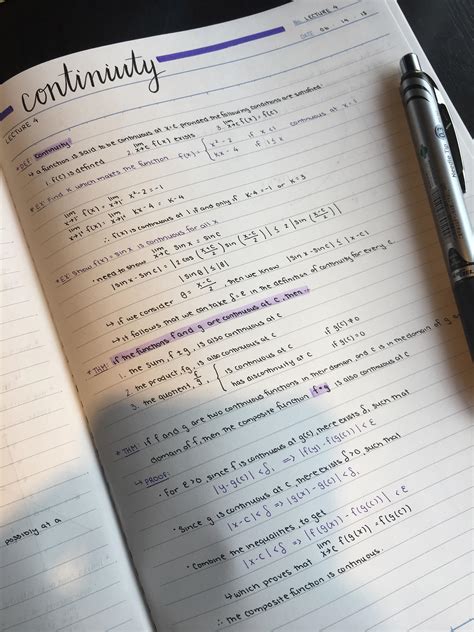 NO. LECTURE 4
DATE 04 14 18
continuity
LECTURE 4
* DEF: continuity
↳ a function is said to be continuous at x=c provided the following conditions are satisfied:
1. f(c) is defined 2. lim x→c f(x) exists 3. lim x→c f(x) = f(c)
* EX: Find k which makes the function f(x) = { x²-2 if x<1 continuous at x=1
kx-4 if 1≤x
lim x→1⁻ f(x) = lim x→1⁻ x²-2 = -1
lim x→1⁺ f(x) = lim x→1⁺ kx-4 = k-4
∴ f(x) is continuous at 1 if and only if k-4=-1 or k=3
* EX: show f(x) = sin x is continuous for all x
• need to show lim x→c sin x = sin c
|sin x - sin c| = |2 cos (x+c/2) sin (x-c/2)| ≤ 2 |sin (x-c/2)|
|sin θ| ≤ |θ|
↳ if we consider θ = x-c/2, then we know |sin x - sin c| ≤ |x-c|
↳ it follows that we can take δ=ε in the definition of continuity for every c
* THM: if the functions f and g are continuous at c, then...
1. the sum, f ± g, is also continuous at c
2. the product, fg, is also continuous at c
3. the quotient, f/g, { is continuous at c if g(c) ≠ 0
has discontinuity at c if g(c) = 0
* THM: if f and g are two continuous functions in their domain, and c is in the domain of g and
domain of f, then the composite function f∘g is also continuous at c
↳ PROOF:
• For ε>0, since f is continuous at g(c), there exists δ₁ such that
|y-g(c)| < δ₁ ⇒ |f(y) - f(g(c))| < ε
• since g is continuous at c, there exists δ>0, such that
|x-c| < δ ⇒ |g(x) - g(c)| < δ₁
• combine the inequalities, to get
|x-c| < δ ⇒ |f(g(x)) - f(g(c))| < ε
↳ which proves that lim x→c f(g(x)) = f(g(c))
∴ the composite function is continuous.
possibly at a